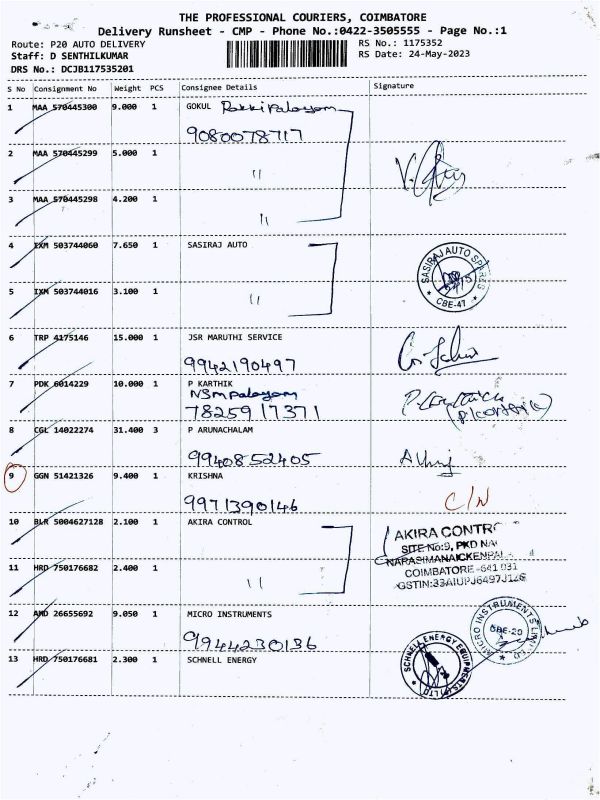 THE PROFESSIONAL COURIERS, COIMBATORE
Delivery Runsheet - CMP - Phone No.:0422-3505555 - Page No.:1
Route: P20 AUTO DELIVERY
RS No.: 1175352
Staff: D SENTHILKUMAR
RS Date: 24-May-2023
DRS No.: DCJB117535201
S No Consignment No Weight PCS Consignee Details Signature
1 MAA 570445300 9.000 1 GOKUL Pakkipalayam
9080078717
2 MAA 570445299 5.000 1
"
3 MAA 570445298 4.200 1
"
4 IXM 503744060 7.650 1 SASIRAJ AUTO
SASIRAJ AUTO SPARES
CBE-47
5 IXM 503744016 3.100 1
"
6 TRP 4175146 15.000 1 JSR MARUTHI SERVICE
9942190497
7 PDK 6014229 10.000 1 P KARTHIK
NSM Palayam
7825917371
8 CGL 14022274 31.400 3 P ARUNACHALAM
9940852405
9 GGN 51421326 9.400 1 KRISHNA
9971390146
C/N
10 BLR 5004627128 2.100 1 AKIRA CONTROL
AKIRA CONTR
SITE No:9, PKD NA
NARASIMANAICKENPAL
COIMBATORE-641 031
11 HRD 750176682 2.400 1
"
12 AMD 26655692 9.050 1 MICRO INSTRUMENTS
9944230136
MICRO INSTRUMENTS
CBE-20
13 HRD 750176681 2.300 1 SCHNELL ENERGY
SCHNELL ENERGY